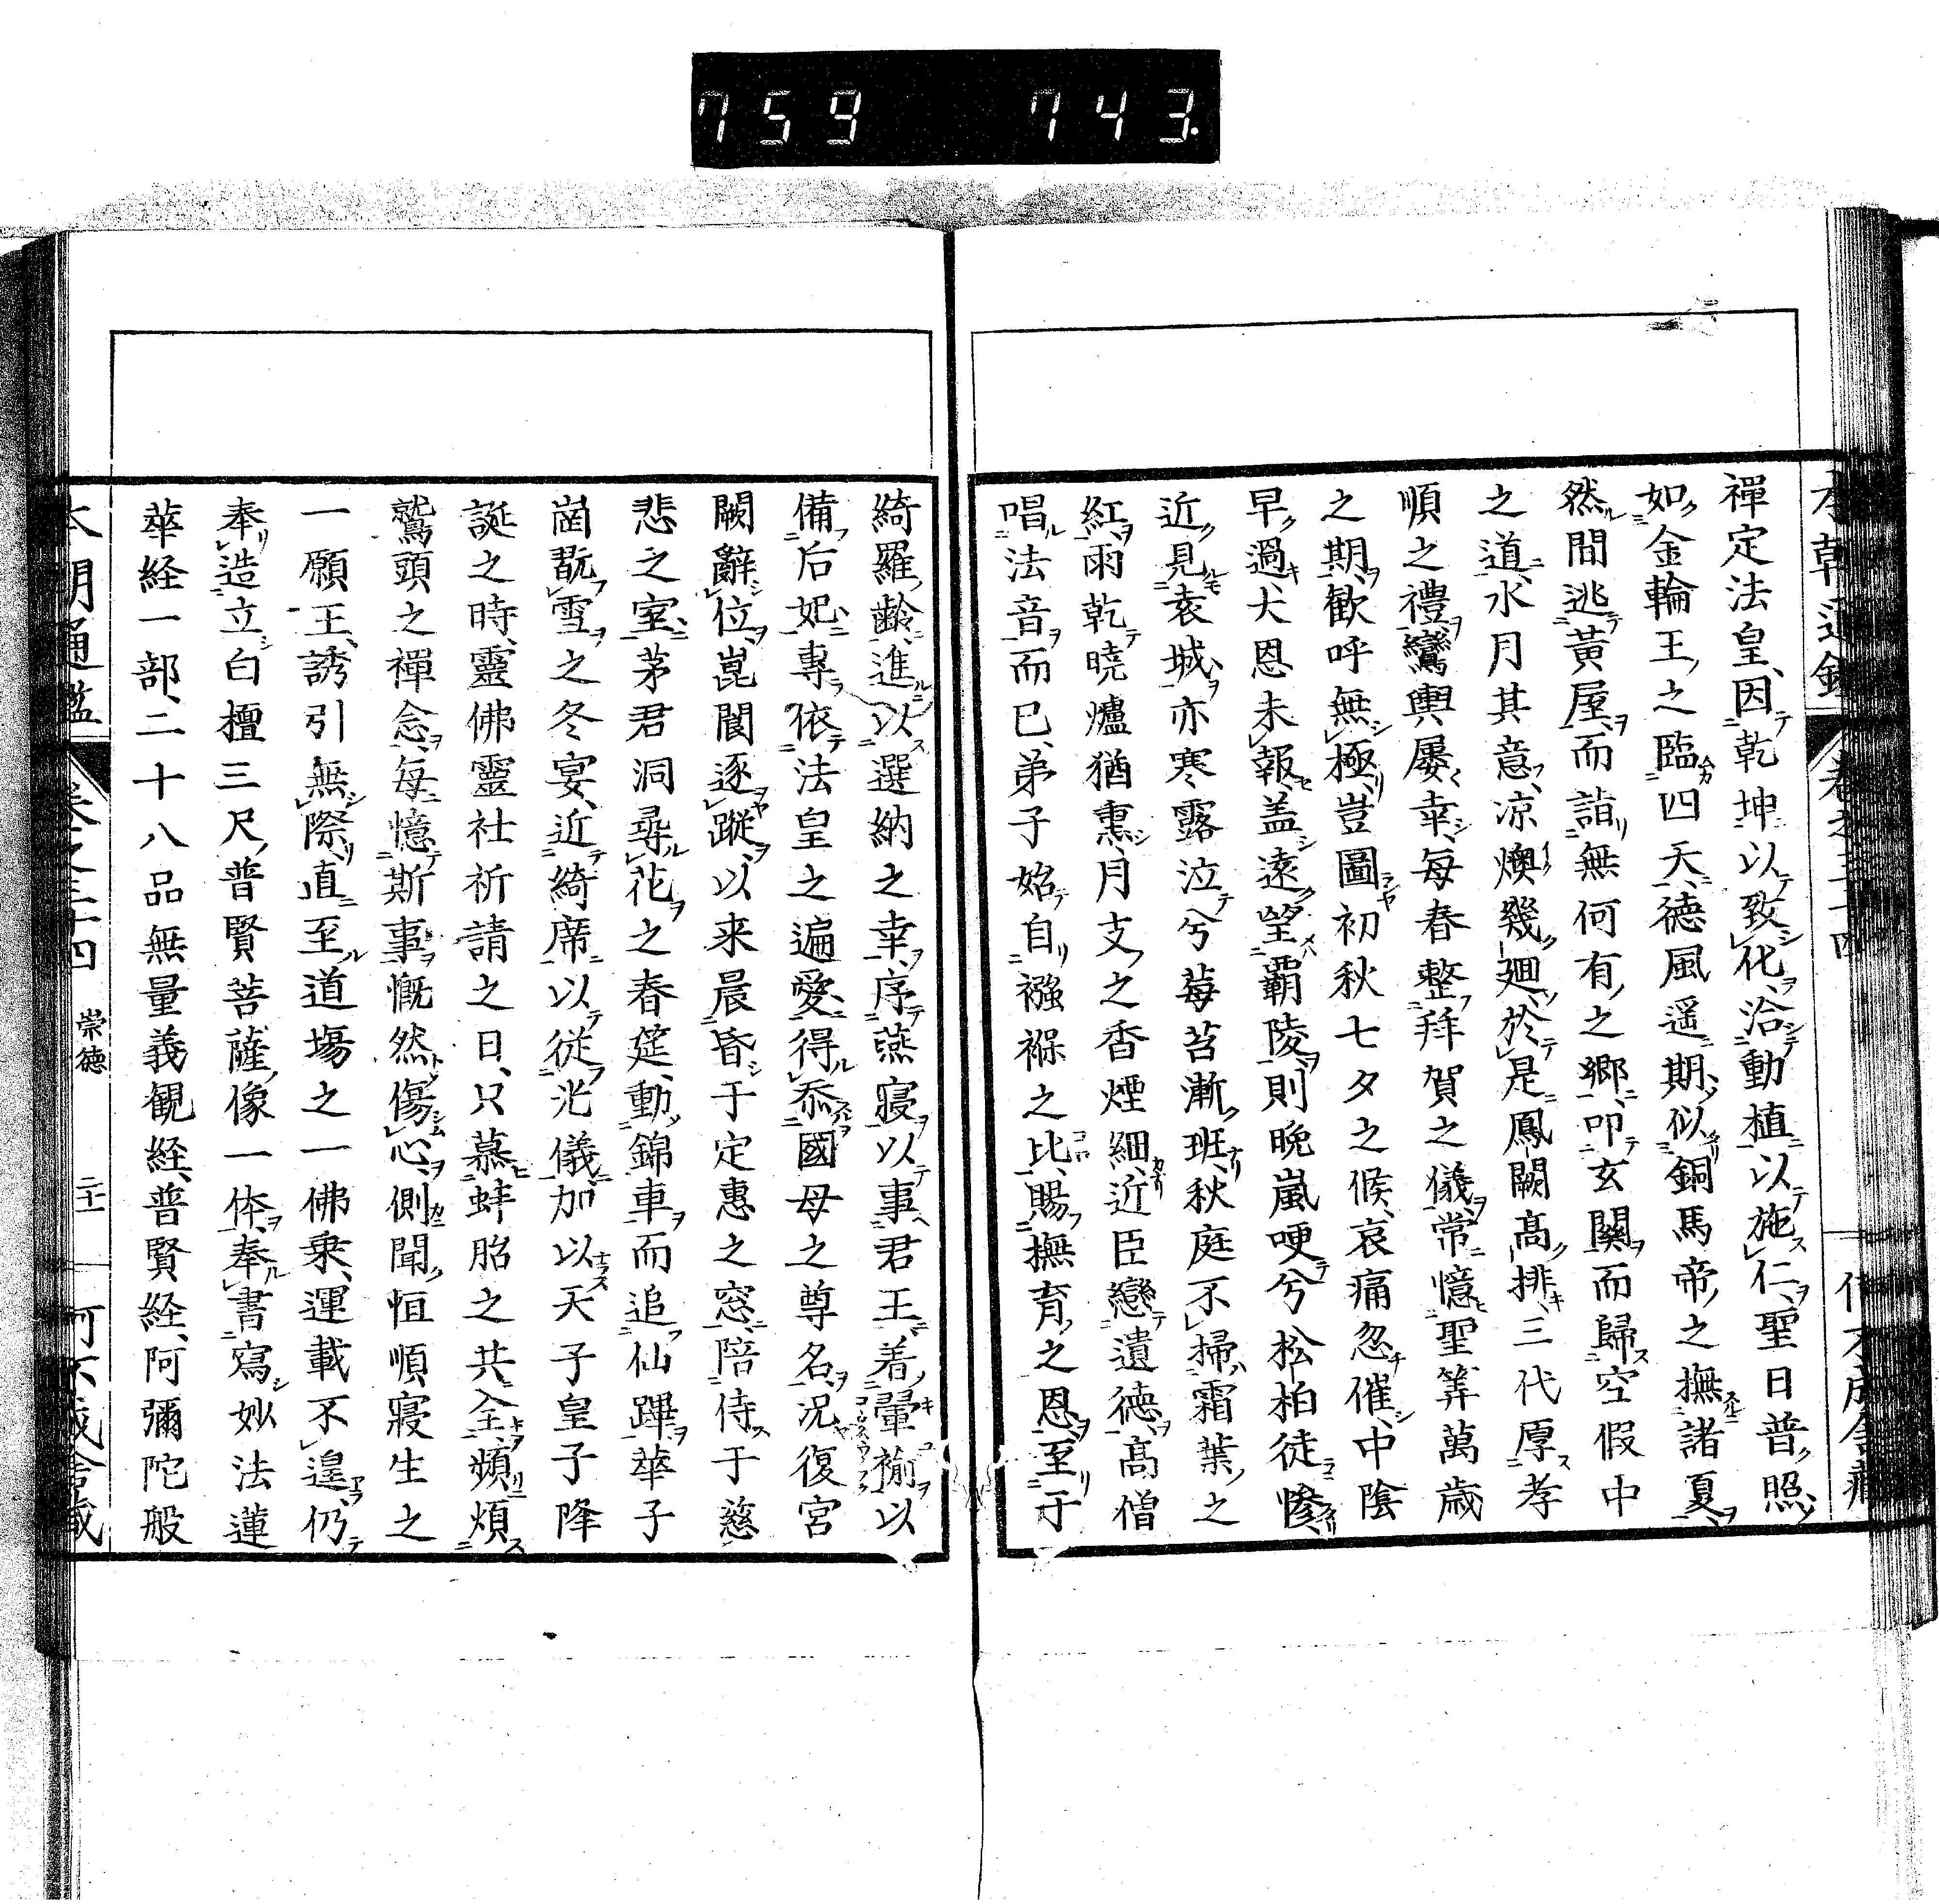 759 743.
禪定法皇、因乾坤以致化、洽動植以施仁、聖日普照、
如金輪王之臨四天、德風遥期、似銅馬帝之撫諸夏、
然間逃黃屋、而詣無何有之鄉、叩玄関而歸空假中
之道、水月其意、凉燠幾廻、於是鳳闕髙排、三代厚孝
順之禮、鸞輿屢幸、每春整拜賀之儀、常憶聖筭萬歳
之期、歓呼無極、豈圖初秋七夕之候、哀痛忽催、中陰
早過、大恩未報、盖遠望覇陵、則晩嵐哽兮松柏徒惨、
近見袁城、亦寒露泣兮莓苔漸班、秋庭不掃、霜葉之
紅、雨乾曉爐猶熏、月支之香煙細、近臣戀遺德、髙僧
唱法音而已、弟子始自襁褓之比、賜撫育之恩、至于
綺羅齢、進以選納之幸、序燕寝以事君王、着翬褕以
備后妃、專依法皇之遍愛、得忝國母之尊名、况復宮
闕辭位、崑閬逐蹤、以来晨昏于定惠之窓、陪侍于慈
悲之室、茅君洞尋花之春筵、動錦車而追仙蹕、華子
崗翫雪之冬宴、近綺席以從光儀、加以天子皇子降
誕之時、靈佛靈社祈請之日、只慕蚌胎之共全、頻煩
鷲頭之禪念、每憶斯事、慨然傷心、側聞恒順寢生之
一願王、誘引無際、直至道場之一佛乗、運載不遑、仍
奉造立白檀三尺普賢菩薩像一体、奉書寫妙法蓮
華経一部、二十八品無量義観経、普賢経、阿彌陀般
本朝通鑑 卷之三十四 崇德 二十一